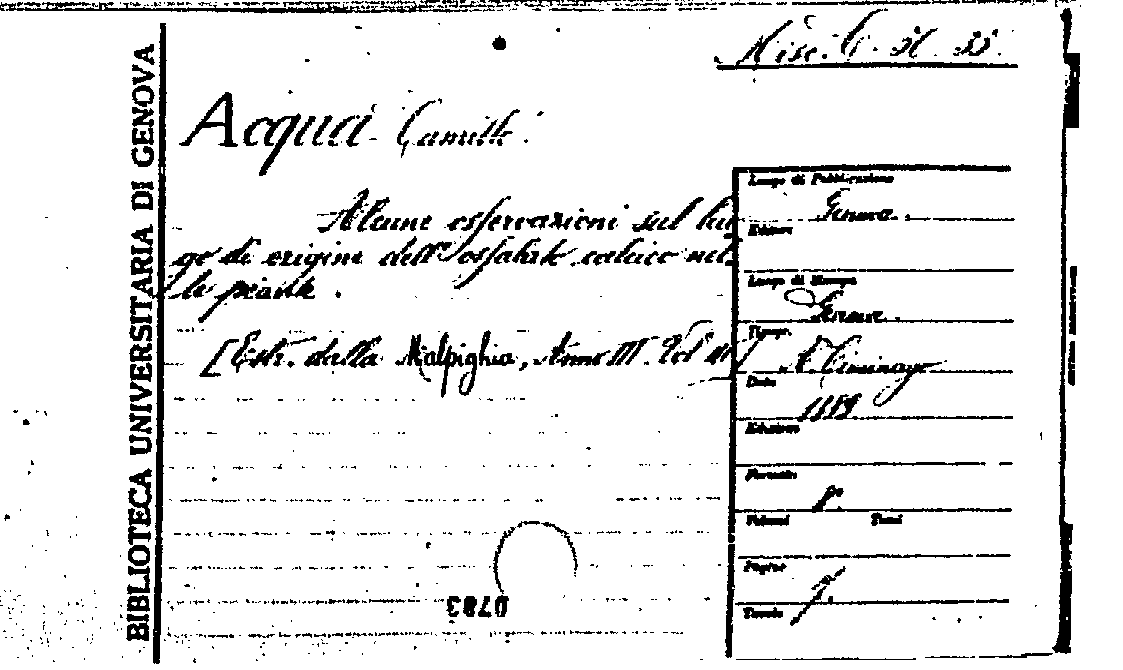 BIBLIOTECA UNIVERSITARIA DI GENOVA
Misc. C.
Acqua Camillo.
Alcune osservazioni sul luo
go di origine dell'ossalato calcico nel
le piante.
[Estr. dalla Malpighia, Anno III. Vol III]
Luogo di Pubblicazione
Genova.
Editore
Luogo di Stampa
Genova.
Tipogr.
A. Ciminago
Data
1889
Edizione
Formato
8°
Volumi Tomi
Pagine
7.
Tavole
0783